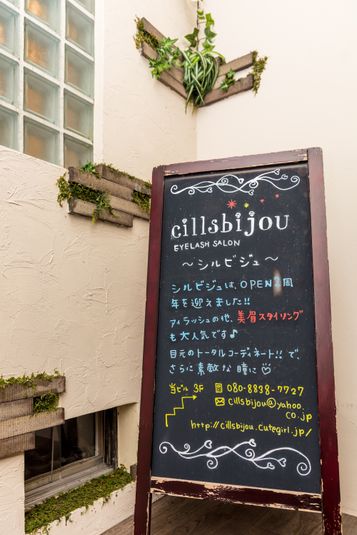 cillsbijou
EYELASH SALON
～シルビジュ～
シルビジュは、OPEN2周
年を迎えました!!
アイラッシュの他、美眉スタイリング
も大人気です♪
目元のトータルコーディネート!!で、
さらに素敵な瞳に
当ビル 3F 080-8838-7727
cillsbijou@yahoo.
co.jp
http://cillsbijou.cutegirl.jp/